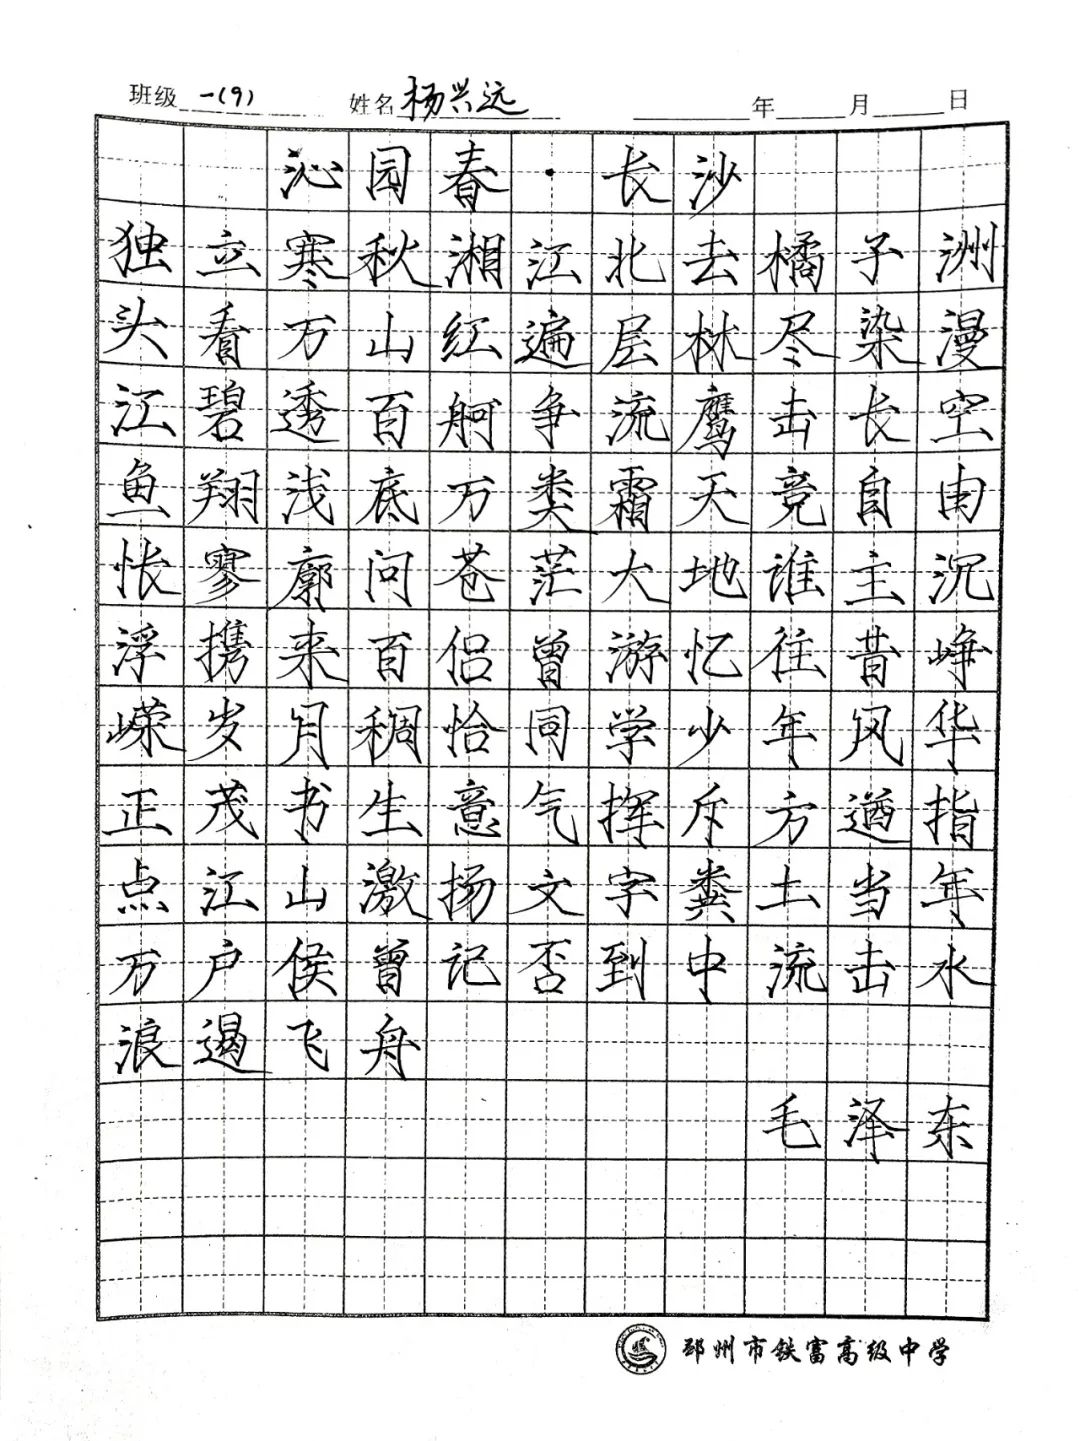 班级 一(9) 姓名 杨兴远 年 月 日
沁园春·长沙
独立寒秋湘江北去橘子洲
头看万山红遍层林尽染漫
江碧透百舸争流鹰击长空
鱼翔浅底万类霜天竞自由
怅寥廓问苍茫大地谁主沉
浮携来百侣曾游忆往昔峥
嵘岁月稠恰同学少年风华
正茂书生意气挥斥方遒指
点江山激扬文字粪土当年
万户侯曾记否到中流击水
浪遏飞舟
毛泽东
邳州市铁富高级中学